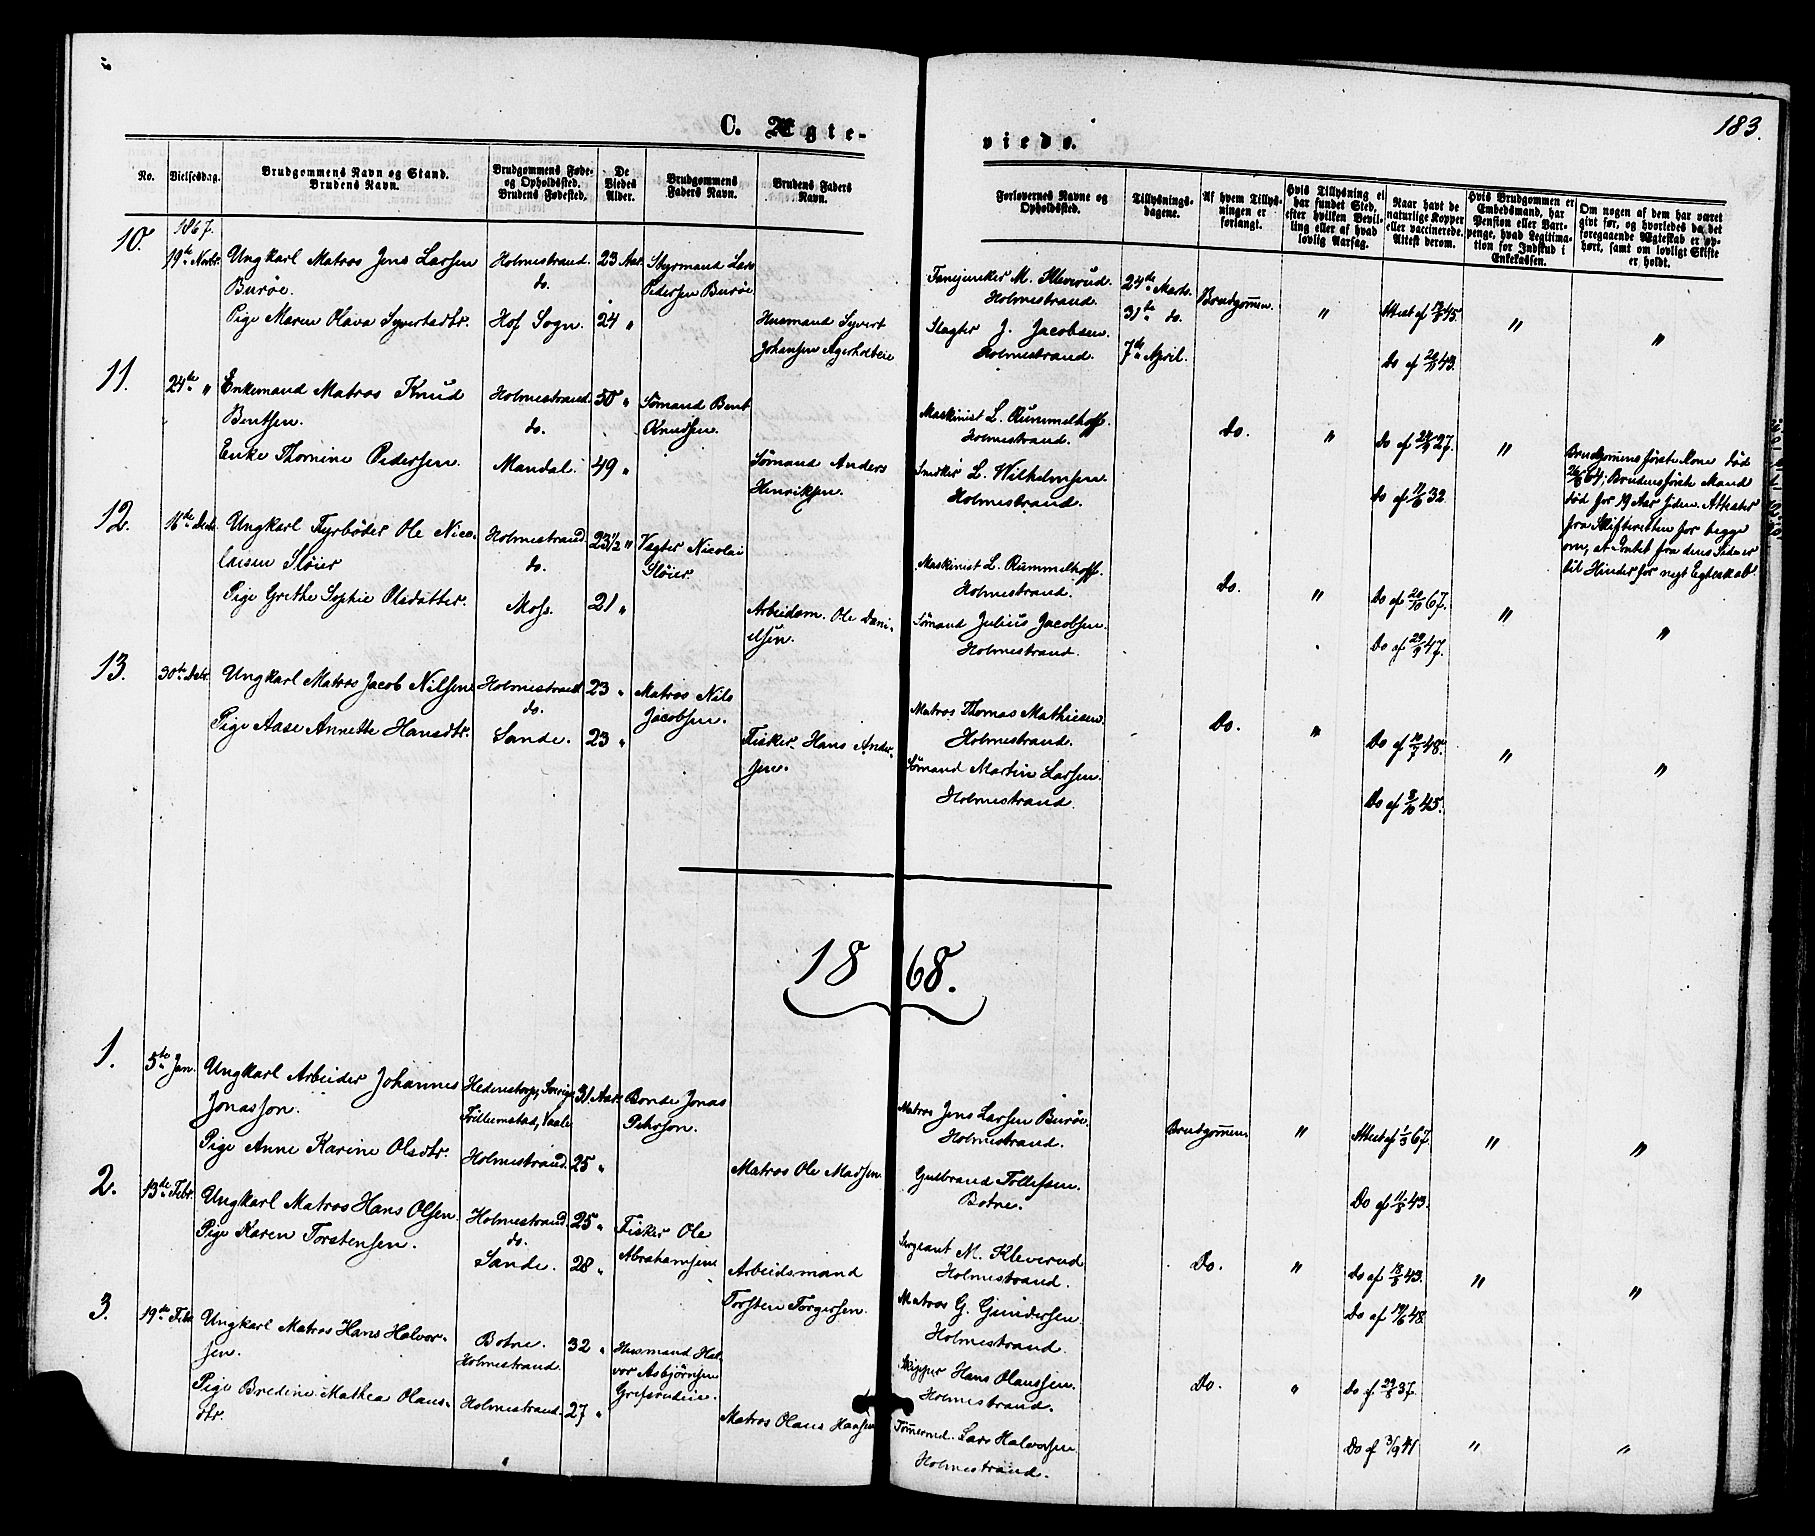 183.
C. Ægte-
viede.
No.
Vielsesdag.
Brudgommens Navn og Stand.
Brudens Navn.
Brudgommens Føde-
og Opholdssted.
Brudens Fødested.
De
Viedes
Alder.
Brudgommens
Faders Navn.
Brudens Faders
Navn.
Forlovernes Navne og
Opholdssted.
Tillysnings-
dagene.
Af hvem Tillys-
ningen er
forlangt.
Hvis Tillysning ei
har fundet Sted,
efter hvilken Bevil-
ling eller af hvad
lovlig Aarsag.
Naar havt de
naturlige Kopper
eller vaccinerede.
Attest derom.
Hvis Brudgommen er
Embedsmand, har
Pension eller Vart-
penge, hvad Legitima-
tion for Indskud i
Enkekassen.
Om nogen af dem har været
gift før, og hvorledes da det
foregaaende Ægteskab er op-
hørt, samt om lovligt Skifte
er holdt.
1867.
10.
19de Novbr.
Ungkarl Matros Jens Larsen
Burøe.
Pige Maren Olava Syvertsdtr.
Holmestrand
do.
Hof Sogn.
23 Aar.
24 "
Styrmand Lars
Pedersen Burøe
Husmand Syvert
Johansen Agerholteie
Fanejunker M. Kleverud.
Holmestrand.
Slagter J. Jacobsen.
Holmestrand.
24de Marts.
31te do.
7de April.
Brudgommen.
"
Attest af 12/8 45.
Do af 20/11 43.
"
"
11.
24de "
Enkemand Matros Knud
Bentsen.
Enke Thomine Pedersen.
Holmestrand.
do.
Mandal.
50 "
49 "
Sømand Bent
Knudsen.
Sømand Anders
Henriksen.
Maskinist L. Rummelhoff.
Holmestrand.
Snedker L. Wilhelmsen.
Holmestrand.
Do.
"
Do af 27.
Do af 32.
"
Brudgommens første Kone død
64; Brudens første Mand
død for 19 Aar siden. Attester
fra Skifteretten for begge
om, at Intet fra dens Side er
til Hinder for nyt Egteskab.
12.
16de Decb.
Ungkarl Fyrbøder Ole Nico-
laisen Sløier
Pige Grethe Sophie Olsdatter.
Holmestrand
do.
Moss.
23 1/2 "
21 "
Vægter Nicolai
Sløier.
Arbeidsm. Ole Dani-
elsen.
Maskinist L. Rummelhoff.
Holmestrand.
Sømand Julius Jacobsen.
Holmestrand.
Do.
"
Do af 20/10 67.
Do af 29/9 47.
"
"
13.
30te Decbr.
Ungkarl Matros Jacob Nilsen
Pige Aase Annette Hansdtr.
Holmestrand
do.
Sande.
23 "
23 "
Matros Nils
Jacobsen.
Fisker Hans Ander-
sen.
Matros Thomas Mathiesen.
Holmestrand.
Sømand Martin Larsen.
Holmestrand.
Do.
"
Do af 10/7 48.
Do af 8/10 45.
"
"
1868.
1.
5te Jan.
Ungkarl Arbeider Johannes
Jonasson.
Pige Anne Karine Olsdtr.
Hedenstorp, Sverige
Vaale
Holmestrand.
31 Aar.
25 "
Bonde Jonas
Pehrson.
Matros Ole Madsen
Matros Jens Larsen Burøe.
Holmestrand.
Gulbrand Tollefsen.
Botne.
Brudgommen
"
Attest af 1/3 67.
Do af 11/8 43.
"
"
2.
13de Febr.
Ungkarl Matros Hans Olsen.
Pige Karen Torstensen.
Holmestrand.
do.
Sande.
25 "
28 "
Fisker Ole
Abrahamsen
Arbeidsmand
Torsten Torgersen.
Sergeant M. Kleverud
Holmestrand.
Matros G. Gundersen
Holmestrand.
Do.
"
Do af 18/8 43.
Do af 48.
"
"
3.
19de Febr.
Ungkarl Matros Hans Halvor-
sen.
Pige Bredine Mathea Olaus-
dtr.
Botne.
Holmestrand.
Holmestrand.
32 "
27 "
Husmand Hal-
vor Asbjørnsen
Grefsrudeie.
Matros Olaus Hansen
Skipper Hans Olaussen.
Holmestrand.
Tømmermd. Lars Halvorsen
Holmestrand.
Do.
"
Do af 29/8 37.
Do af 3/9 41
"
"